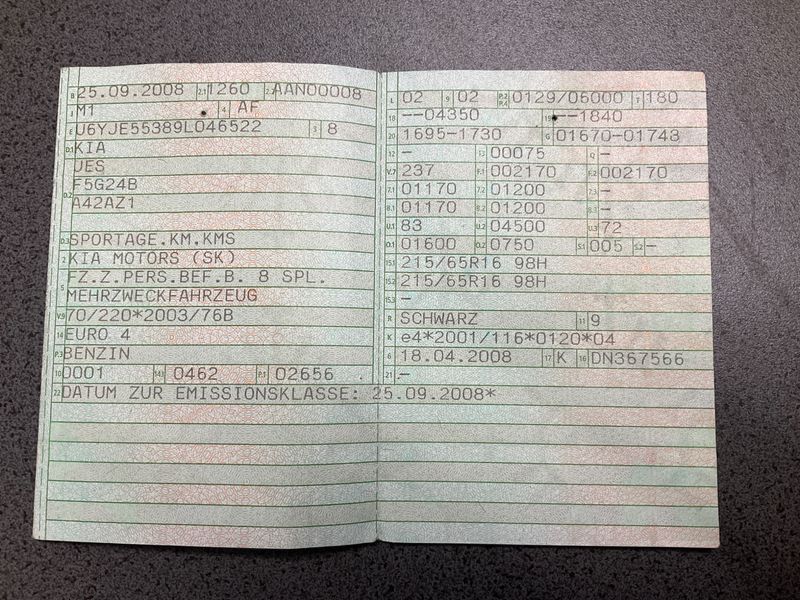 B 25.09.2008 2.1 1260 2.2 AAN00008
J M1 4 AF
E U6YJE55389L046522 3 8
D.1 KIA
JES
D.2 F5G24B
A42AZ1
D.3 SPORTAGE.KM.KMS
2 KIA MOTORS (SK)
5 FZ.Z.PERS.BEF.B. 8 SPL.
MEHRZWECKFAHRZEUG
V.9 70/220*2003/76B
14 EURO 4
P.3 BENZIN
10 0001 14.1 0462 P.1 02656 .
22 DATUM ZUR EMISSIONSKLASSE: 25.09.2008*
L 02 9 02 P.2 P.4 0129/06000 T 180
18 --04350 19 --1840
20 1695-1730 G 01670-01743
12 - 13 00075 Q -
V.7 237 F.1 002170 F.2 002170
7.1 01170 7.2 01200 7.3 -
8.1 01170 8.2 01200 8.3 -
U.1 83 U.2 04500 U.3 72
O.1 01600 O.2 0750 S.1 005 S.2 -
15.1 215/65R16 98H
15.2 215/65R16 98H
15.3 -
R SCHWARZ 11 9
K e4*2001/116*0120*04
6 18.04.2008 17 K 16 DN367566
21 .-